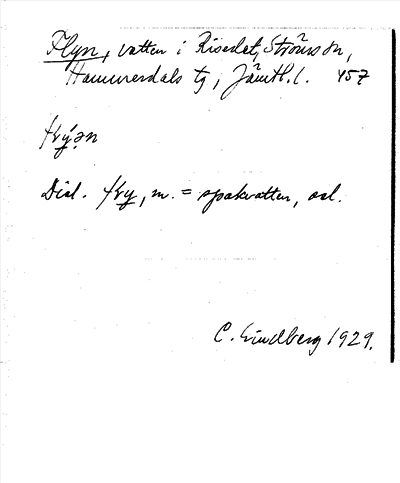 Flyn, vatten i Riselet, Strömsön,
Hammerdals tg, Jämtl. l. 457
flýən
Dial. fly, m. = spakvatten, sel.
C. Lindberg 1929.